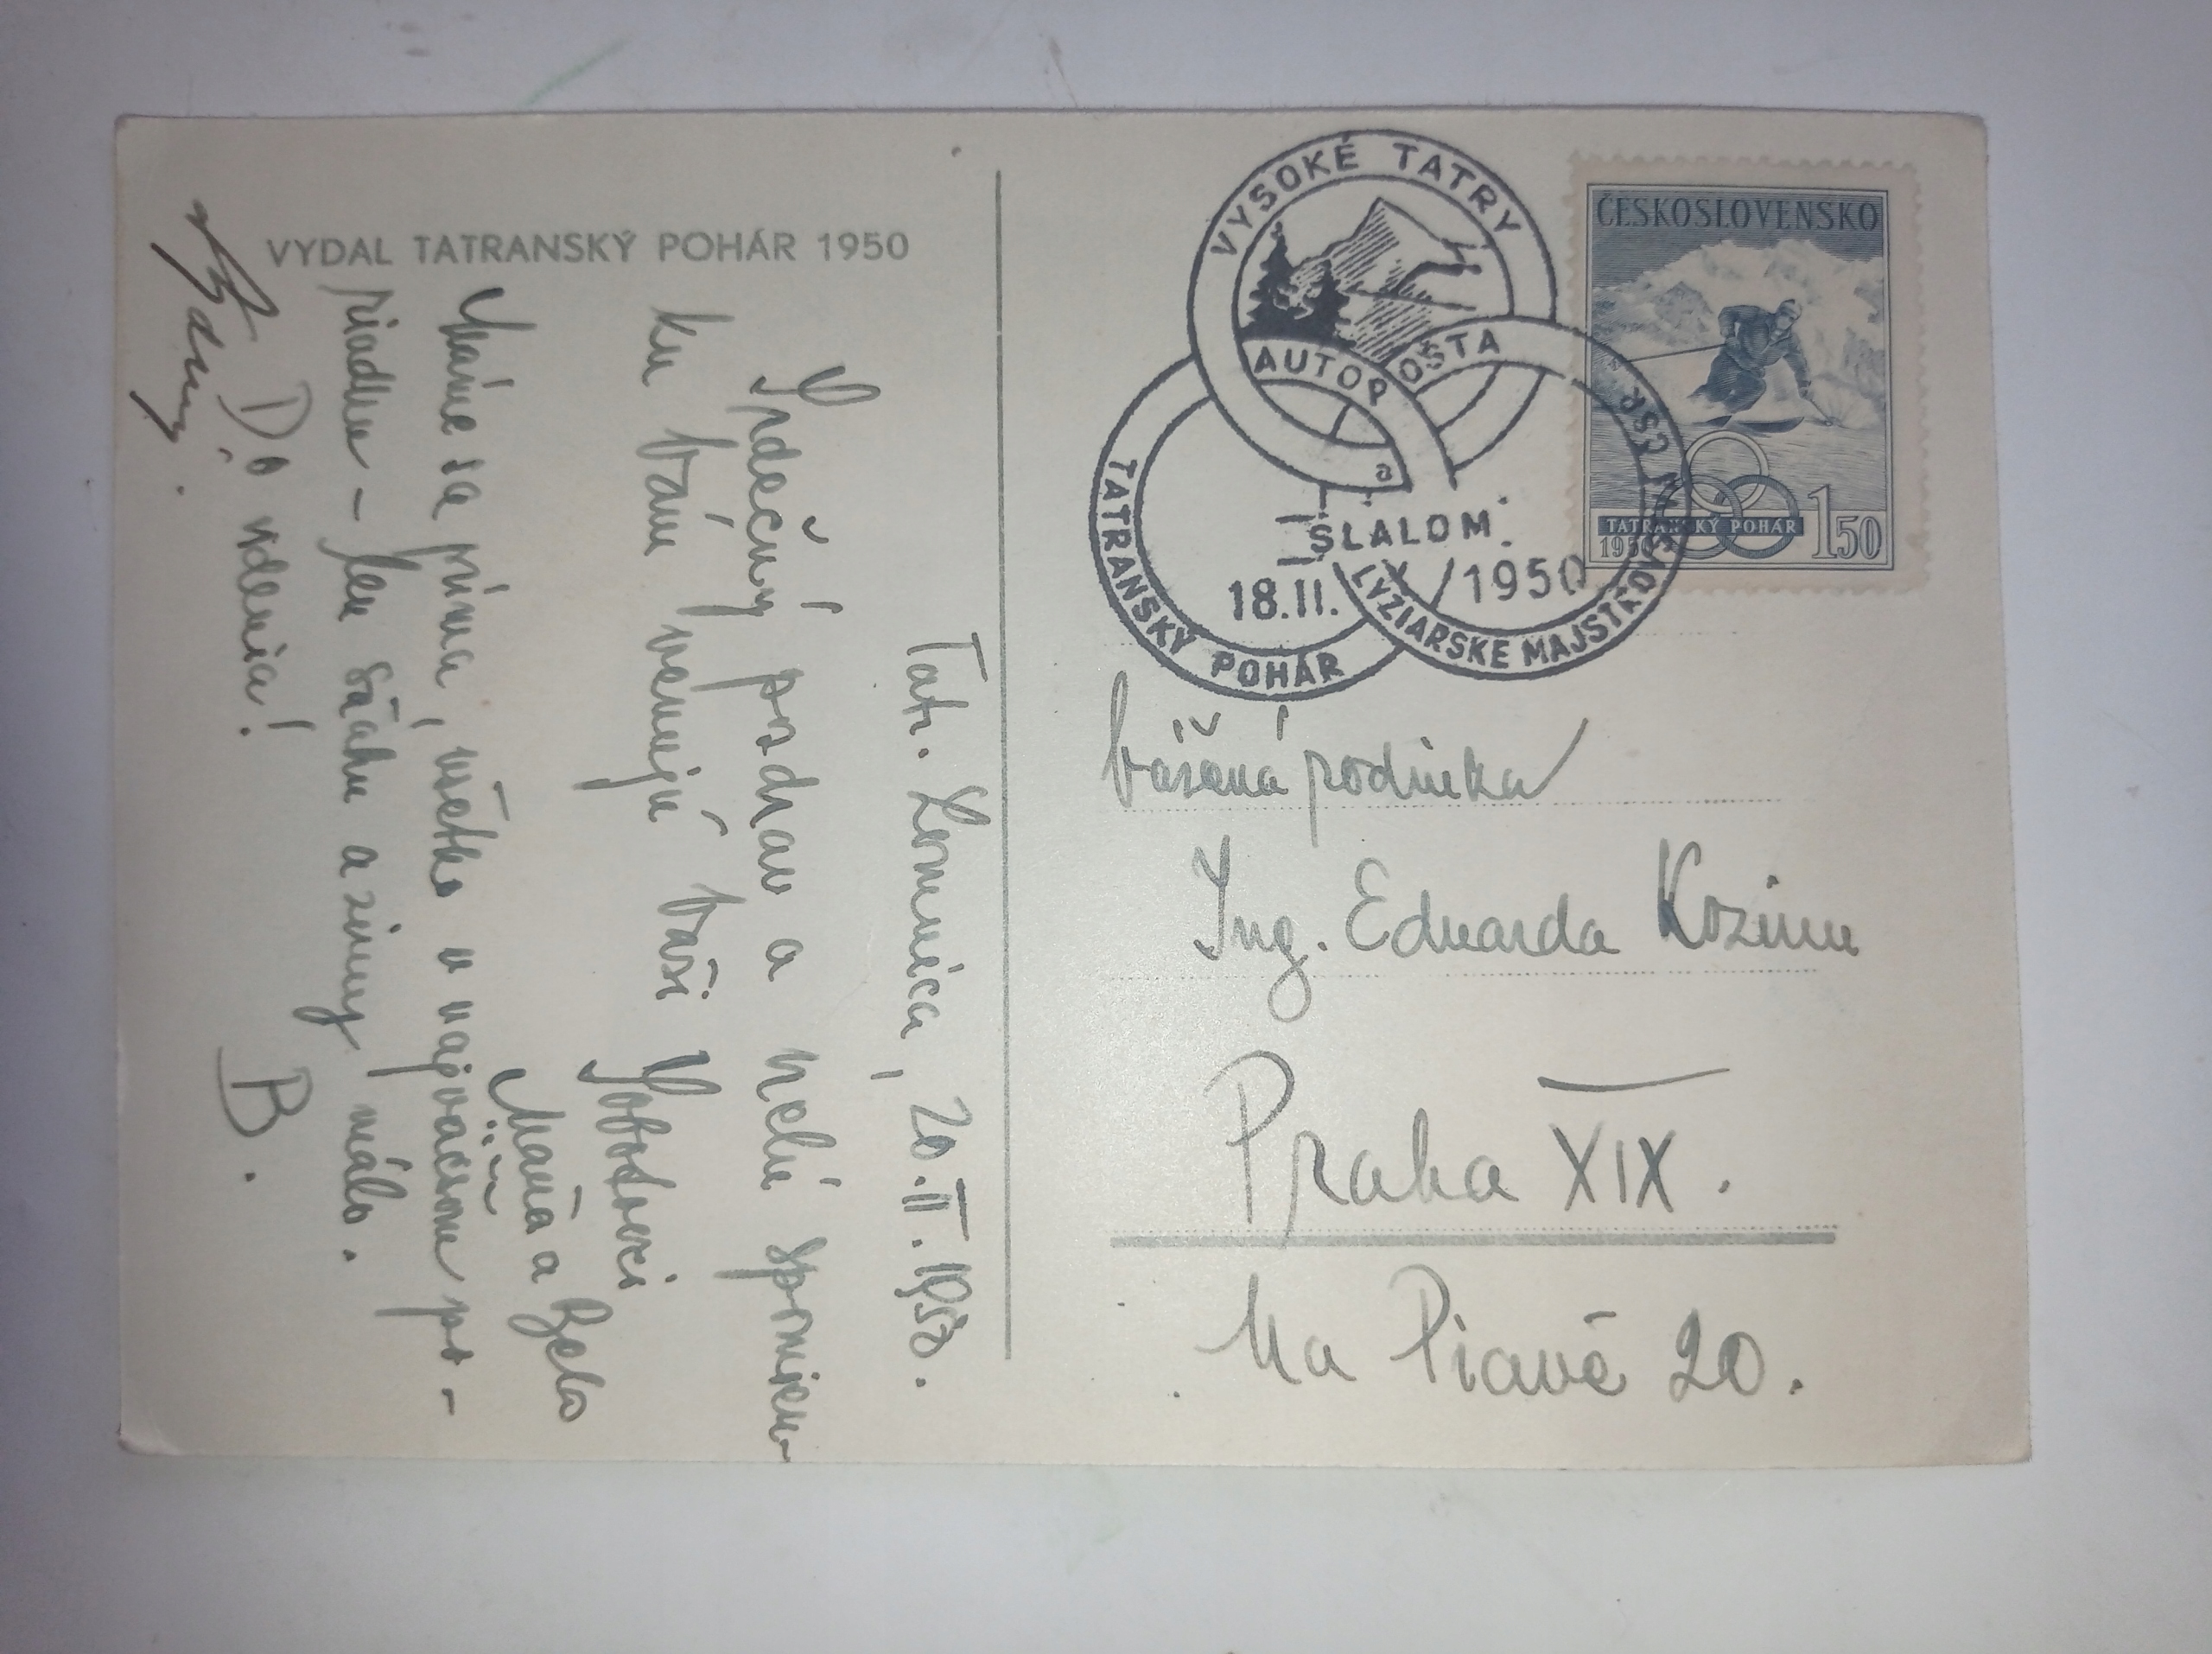 VYDAL TATRANSKÝ POHÁR 1950
Tat. Lomnica, 20.II.1950.
Srdečný pozdrav a milú spomien-
ku Vám venujú Vaši
Maňa a Belo
Máme sa prima, všetko v najväčšom po-
riadku – len sňahu a zimy málo.
Do videnia! B.
VYSOKÉ TATRY
AUTOPOŠTA
a
TATRANSKÝ POHÁR
LYŽIARSKE MAJSTROVSTVÁ ČSR
SLALOM
18.II. 1950
ČESKOSLOVENSKO
TATRANSKÝ POHÁR
1950
150
Vážená rodinka
Ing. Eduarda Kozinu
Praha XIX.
Na Piavě 20.